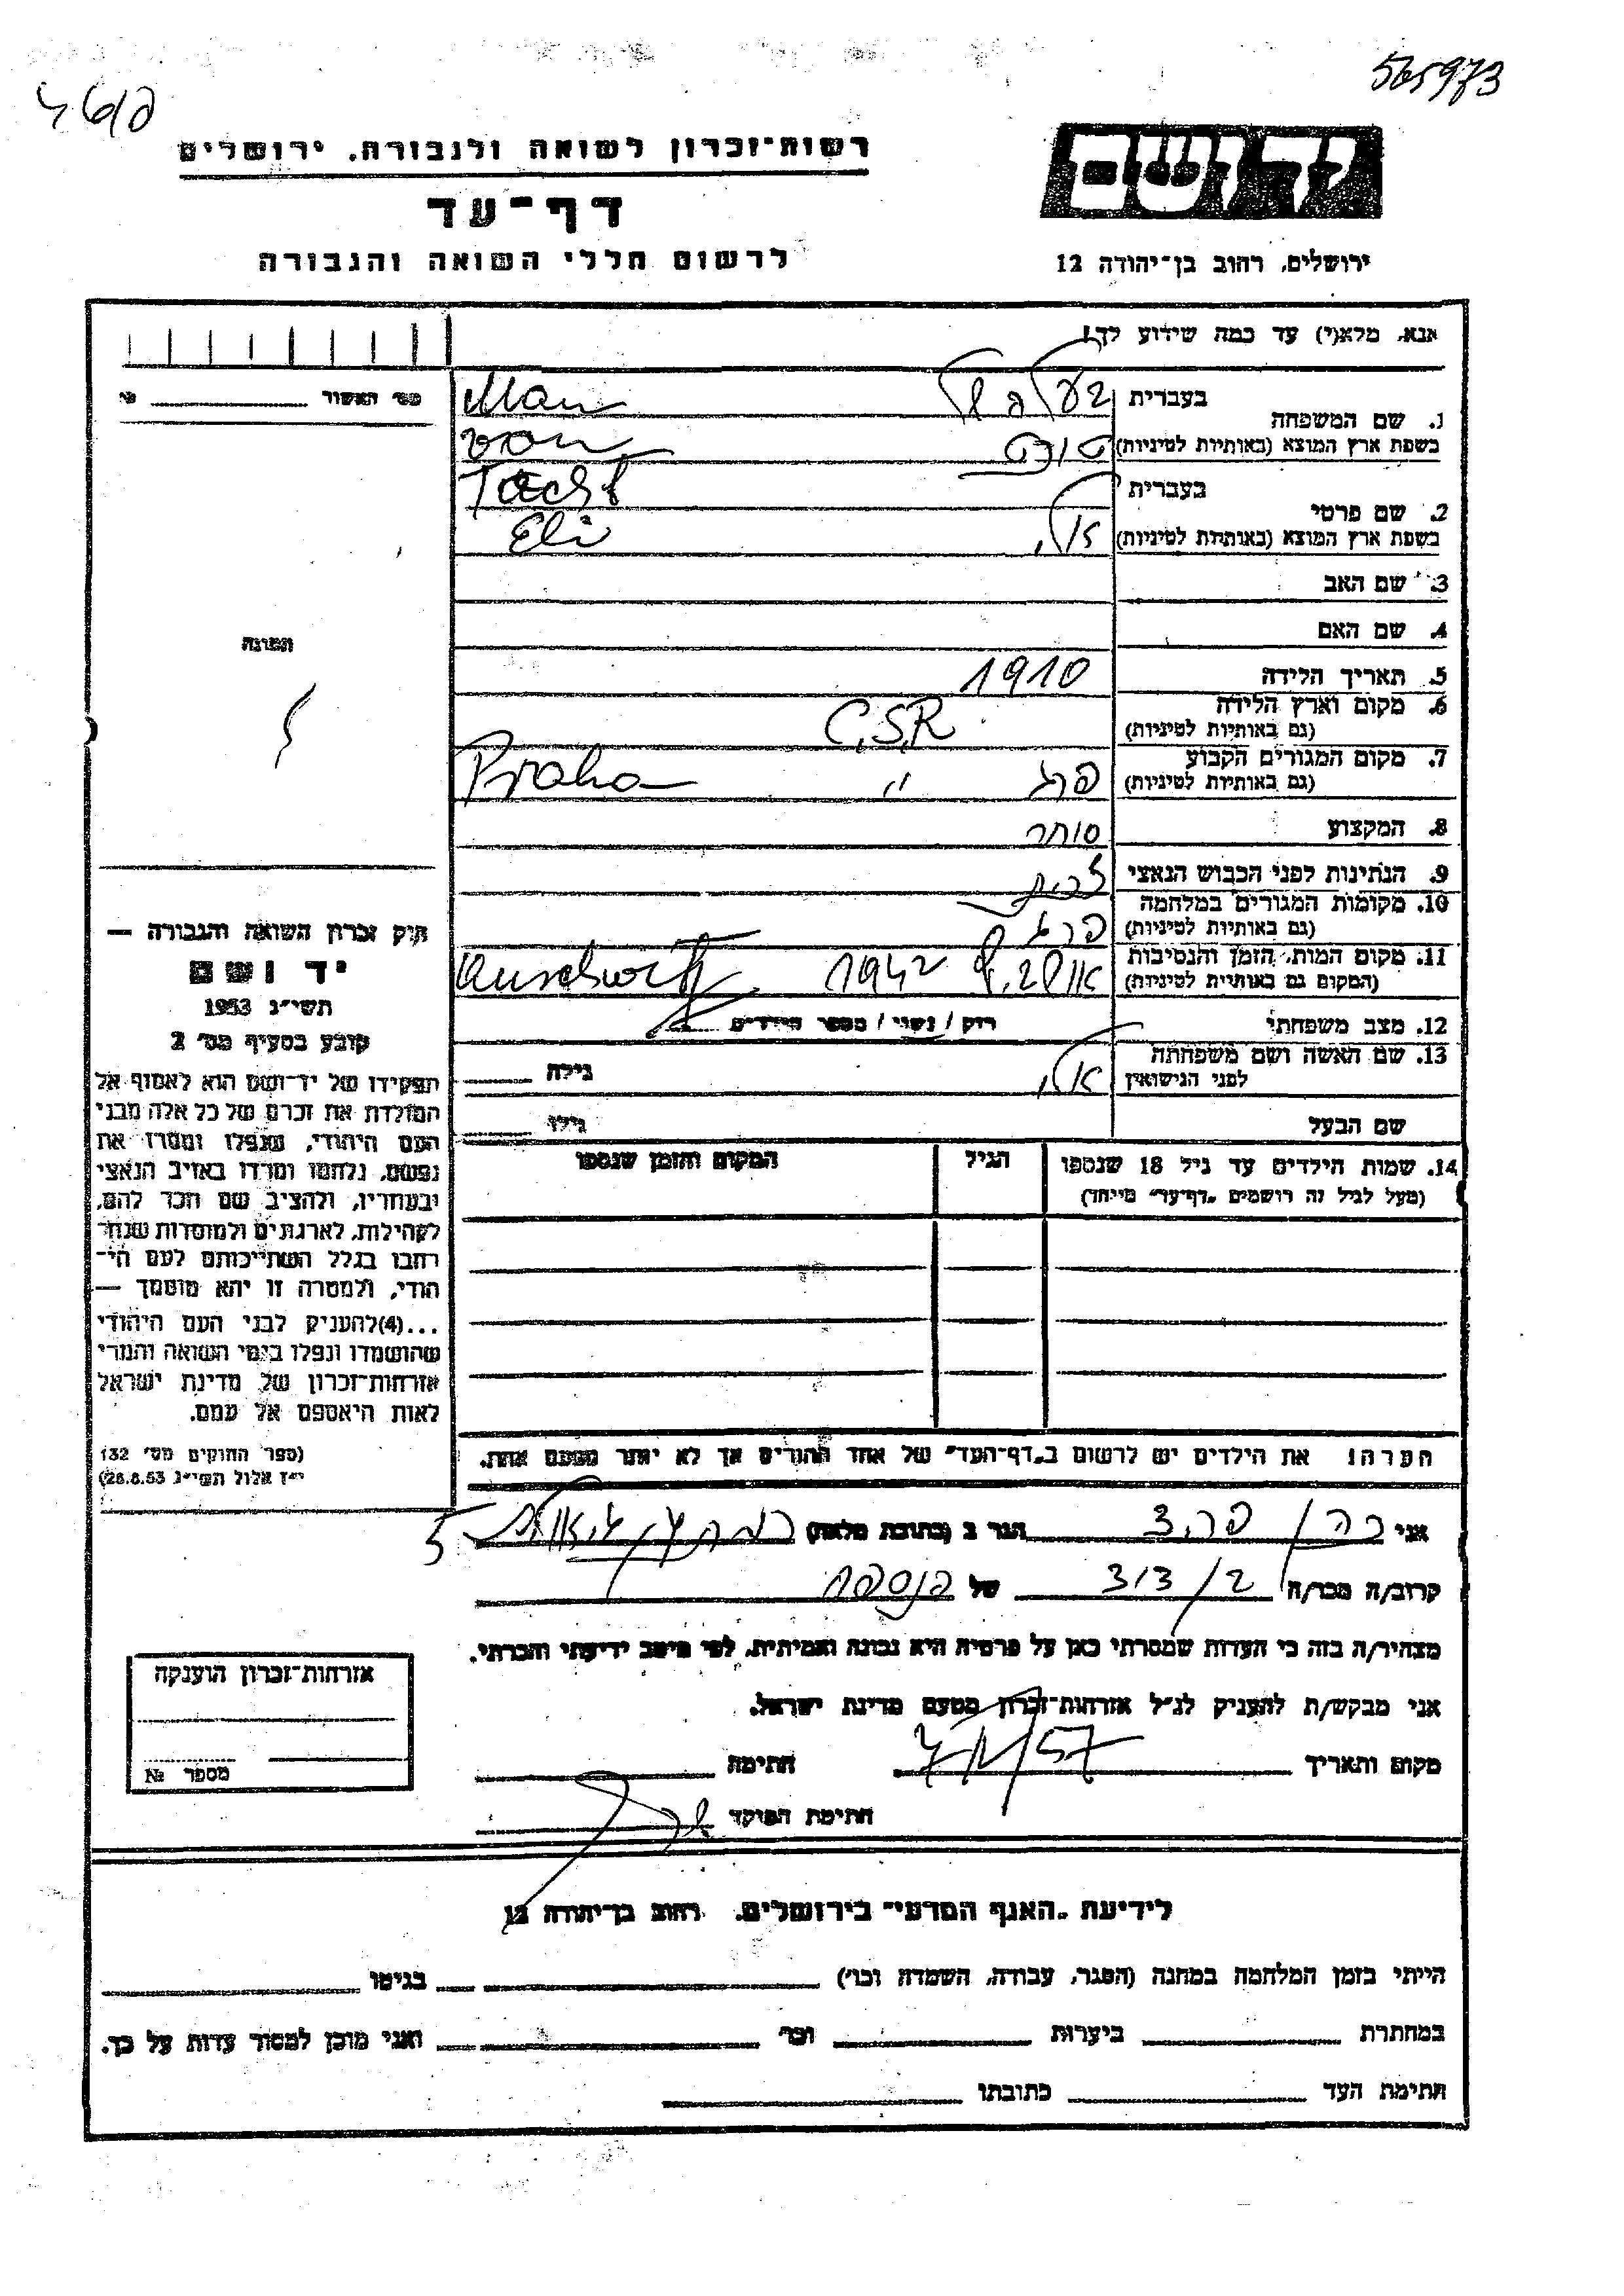 565973
רשות-זכרון לשואה ולגבורה, ירושלים
יד ושם
דף-עד
לרשום חללי השואה והגבורה
ירושלים, רחוב בן-יהודה 12
אנא, מלא(י) עד כמה שידוע לך!
מס' האשור
1. שם המשפחה
בעברית
בעל של
Man
בשפת ארץ המוצא (באותיות לטיניות)
von
Tacht
2. שם פרטי
בעברית
בשפת ארץ המוצא (באותיות לטיניות)
אלי
Eli
3. שם האב
4. שם האם
התמונה
5. תאריך הלידה
1910
6. מקום וארץ הלידה
(גם באותיות לטיניות)
C.S.R
7. מקום המגורים הקבוע
(גם באותיות לטיניות)
פרג " Praha
8. המקצוע
סוחר
9. הנתינות לפני הכבוש הנאצי
10. מקומות המגורים במלחמה
(גם באותיות לטיניות)
פרג
11. מקום המות, הזמן והנסיבות
(המקום גם באותיות לטיניות)
1942 Auschwitz
12. מצב משפחתי
רוק / נשוי / מספר הילדים
13. שם האשה ושם משפחתה
לפני הנישואין
אלי
גילה
שם הבעל
גילו
14. שמות הילדים עד גיל 18 שנספו
(מעל לגיל זה רושמים "דף-עד" מיוחד)
הגיל
המקום והזמן שנספו
חוק זכרון השואה והגבורה —
יד ושם
תשי"ג 1953
קובע בסעיף מס' 2
תפקידו של יד-ושם הוא לאסוף אל
המולדת את זכרם של כל אלה מבני
העם היהודי, שנפלו ומסרו את
נפשם, נלחמו ומרדו באויב הנאצי
ובעוזריו, ולהציב שם וזכר להם,
לקהילות, לארגונים ולמוסדות שנח-
רחבו בגלל השתייכותם לעם הי-
הודי, ולמטרה זו יהא מוסמך —
...(4) להעניק לבני העם היהודי
שהושמדו ונפלו בימי השואה והמרי
אזרחות-זכרון של מדינת ישראל
לאות היאספם אל עמם.
(ספר החוקים מס' 132
י"ז אלול תשי"ג 28.8.53)
הערה: את הילדים יש לרשום ב"דף-העד" של אחד ההורים אך לא יותר מפעם אחת.
אני כהן פריד הגר ב (כתובת מלאה) 5
קרוב/ה מכר/ה של הנספה
מצהיר/ה בזה כי העדות שמסרתי כאן על פרטיה היא נכונה ואמיתית, לפי מיטב ידיעתי והכרתי.
אני מבקש/ת להעניק לנ"ל אזרחות-זכרון מטעם מדינת ישראל.
מקום ותאריך 7/11/57 חתימה
חתימת הפוקד
אזרחות-זכרון הוענקה
מספר №
לידיעת "האגף המדעי" בירושלים, רחוב בן-יהודה 12
הייתי בזמן המלחמה במחנה (הסגר, עבודה, השמדה וכו') בגיטו
במחתרת ביערות וכו' ואני מוכן למסור עדות על כך.
חתימת העד כתובתו